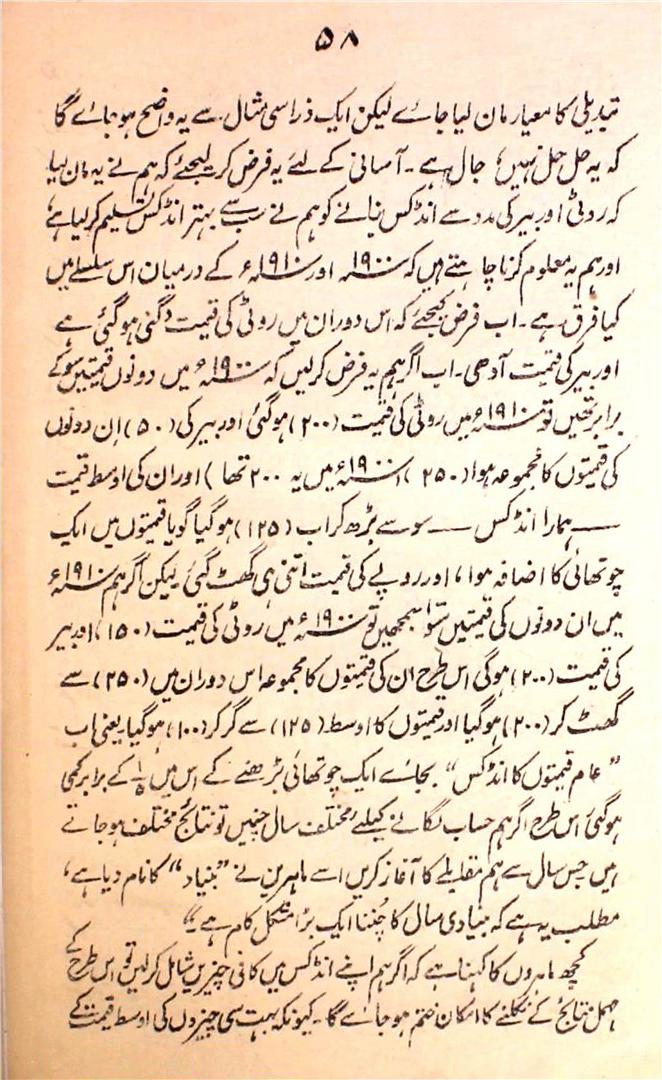 ۵۸
تبدیلی کا معیار مان لیا جائے لیکن ایک ذرا سی مثال سے یہ واضح ہو جائے گا
کہ یہ حل حل نہیں، جال ہے۔ آسانی کے لئے یہ فرض کر لیجئے کہ ہم نے یہ مان لیا
کہ روٹی اور بیر کی مدد سے انڈکس بنانے کو ہم نے سب سے بہتر انڈکس تسلیم کر لیا ہے،
اور ہم یہ معلوم کرنا چاہتے ہیں کہ ۱۹۰۰ء اور ۱۹۱۰ء کے درمیان اس سلسلے میں
کیا فرق ہے۔ اب فرض کیجئے کہ اس دوران میں روٹی کی قیمت دگنی ہو گئی ہے
اور بیر کی قیمت آدھی۔ اب اگر ہم یہ فرض کر لیں کہ ۱۹۰۰ء میں دونوں قیمتیں سو کے
برابر تھیں تو ۱۹۱۰ء میں روٹی کی قیمت (۲۰۰) ہو گئی اور بیر کی (۵۰) ان دونوں
کی قیمتوں کا مجموعہ ہوا (۲۵۰) (۱۹۰۰ء میں یہ ۲۰۰ تھا) اور ان کی اوسط قیمت
— ہمارا انڈکس — سو سے بڑھ کر اب (۱۲۵) ہو گیا گویا قیمتوں میں ایک
چوتھائی کا اضافہ ہوا، اور روپے کی قیمت اتنی ہی گھٹ گئی لیکن اگر ہم ۱۹۱۰ء
میں ان دونوں کی قیمتیں سو سمجھیں تو ۱۹۰۰ء میں روٹی کی قیمت (۱۵۰) اور بیر
کی قیمت (۲۰۰) ہو گی اس طرح ان کی قیمتوں کا مجموعہ اس دوران میں (۲۵۰) سے
گھٹ کر (۲۰۰) ہو گیا اور قیمتوں کا اوسط (۱۲۵) سے گر کر (۱۰۰) ہو گیا یعنی اب
"عام قیمتوں کا انڈکس" بجائے ایک چوتھائی بڑھنے کے اس میں ۱/۵ کے برابر کمی
ہو گئی اس طرح اگر ہم حساب لگانے کیلئے مختلف سال چنیں تو نتائج مختلف ہو جاتے
ہیں جس سال سے ہم مقابلے کا آغاز کریں اسے ماہرین نے "بنیاد" کا نام دیا ہے،
مطلب یہ ہے کہ بنیادی سال کا چننا ایک بڑا مشکل کام ہے"
کچھ ماہروں کا کہنا ہے کہ اگر ہم اپنے انڈکس میں کافی چیزیں شامل کر لیں تو اس طرح کے
مہمل نتائج کے نکلنے کا امکان ختم ہو جائے گا۔ کیونکہ بہت سی چیزوں کی اوسط قیمت کے